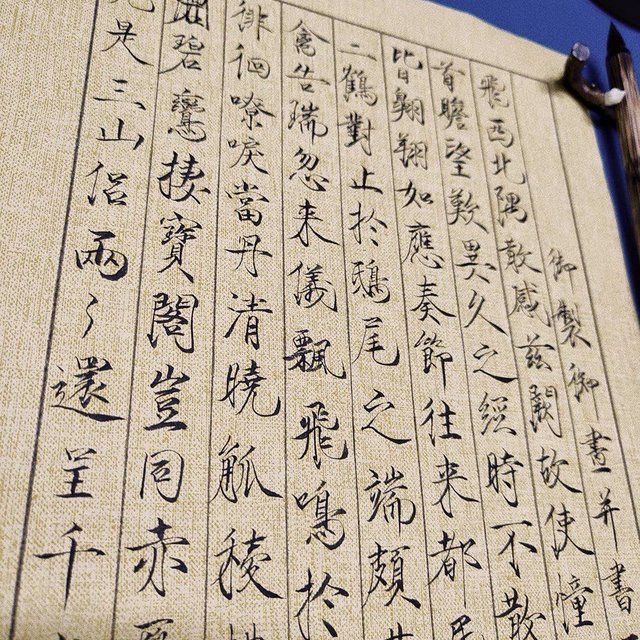 御製御畫并書
飛西北隅敢感茲闕故使憧
首瞻望歎異久之經時不散
皆翱翔如應奏節往来都
二鶴對止於鴟尾之端頗
禽告瑞忽来儀飄飛鳴於
徘徊嘹唳當丹清曉觚稜
碧鸞棲寶閣豈同赤
元是三山侶兩〻還呈千